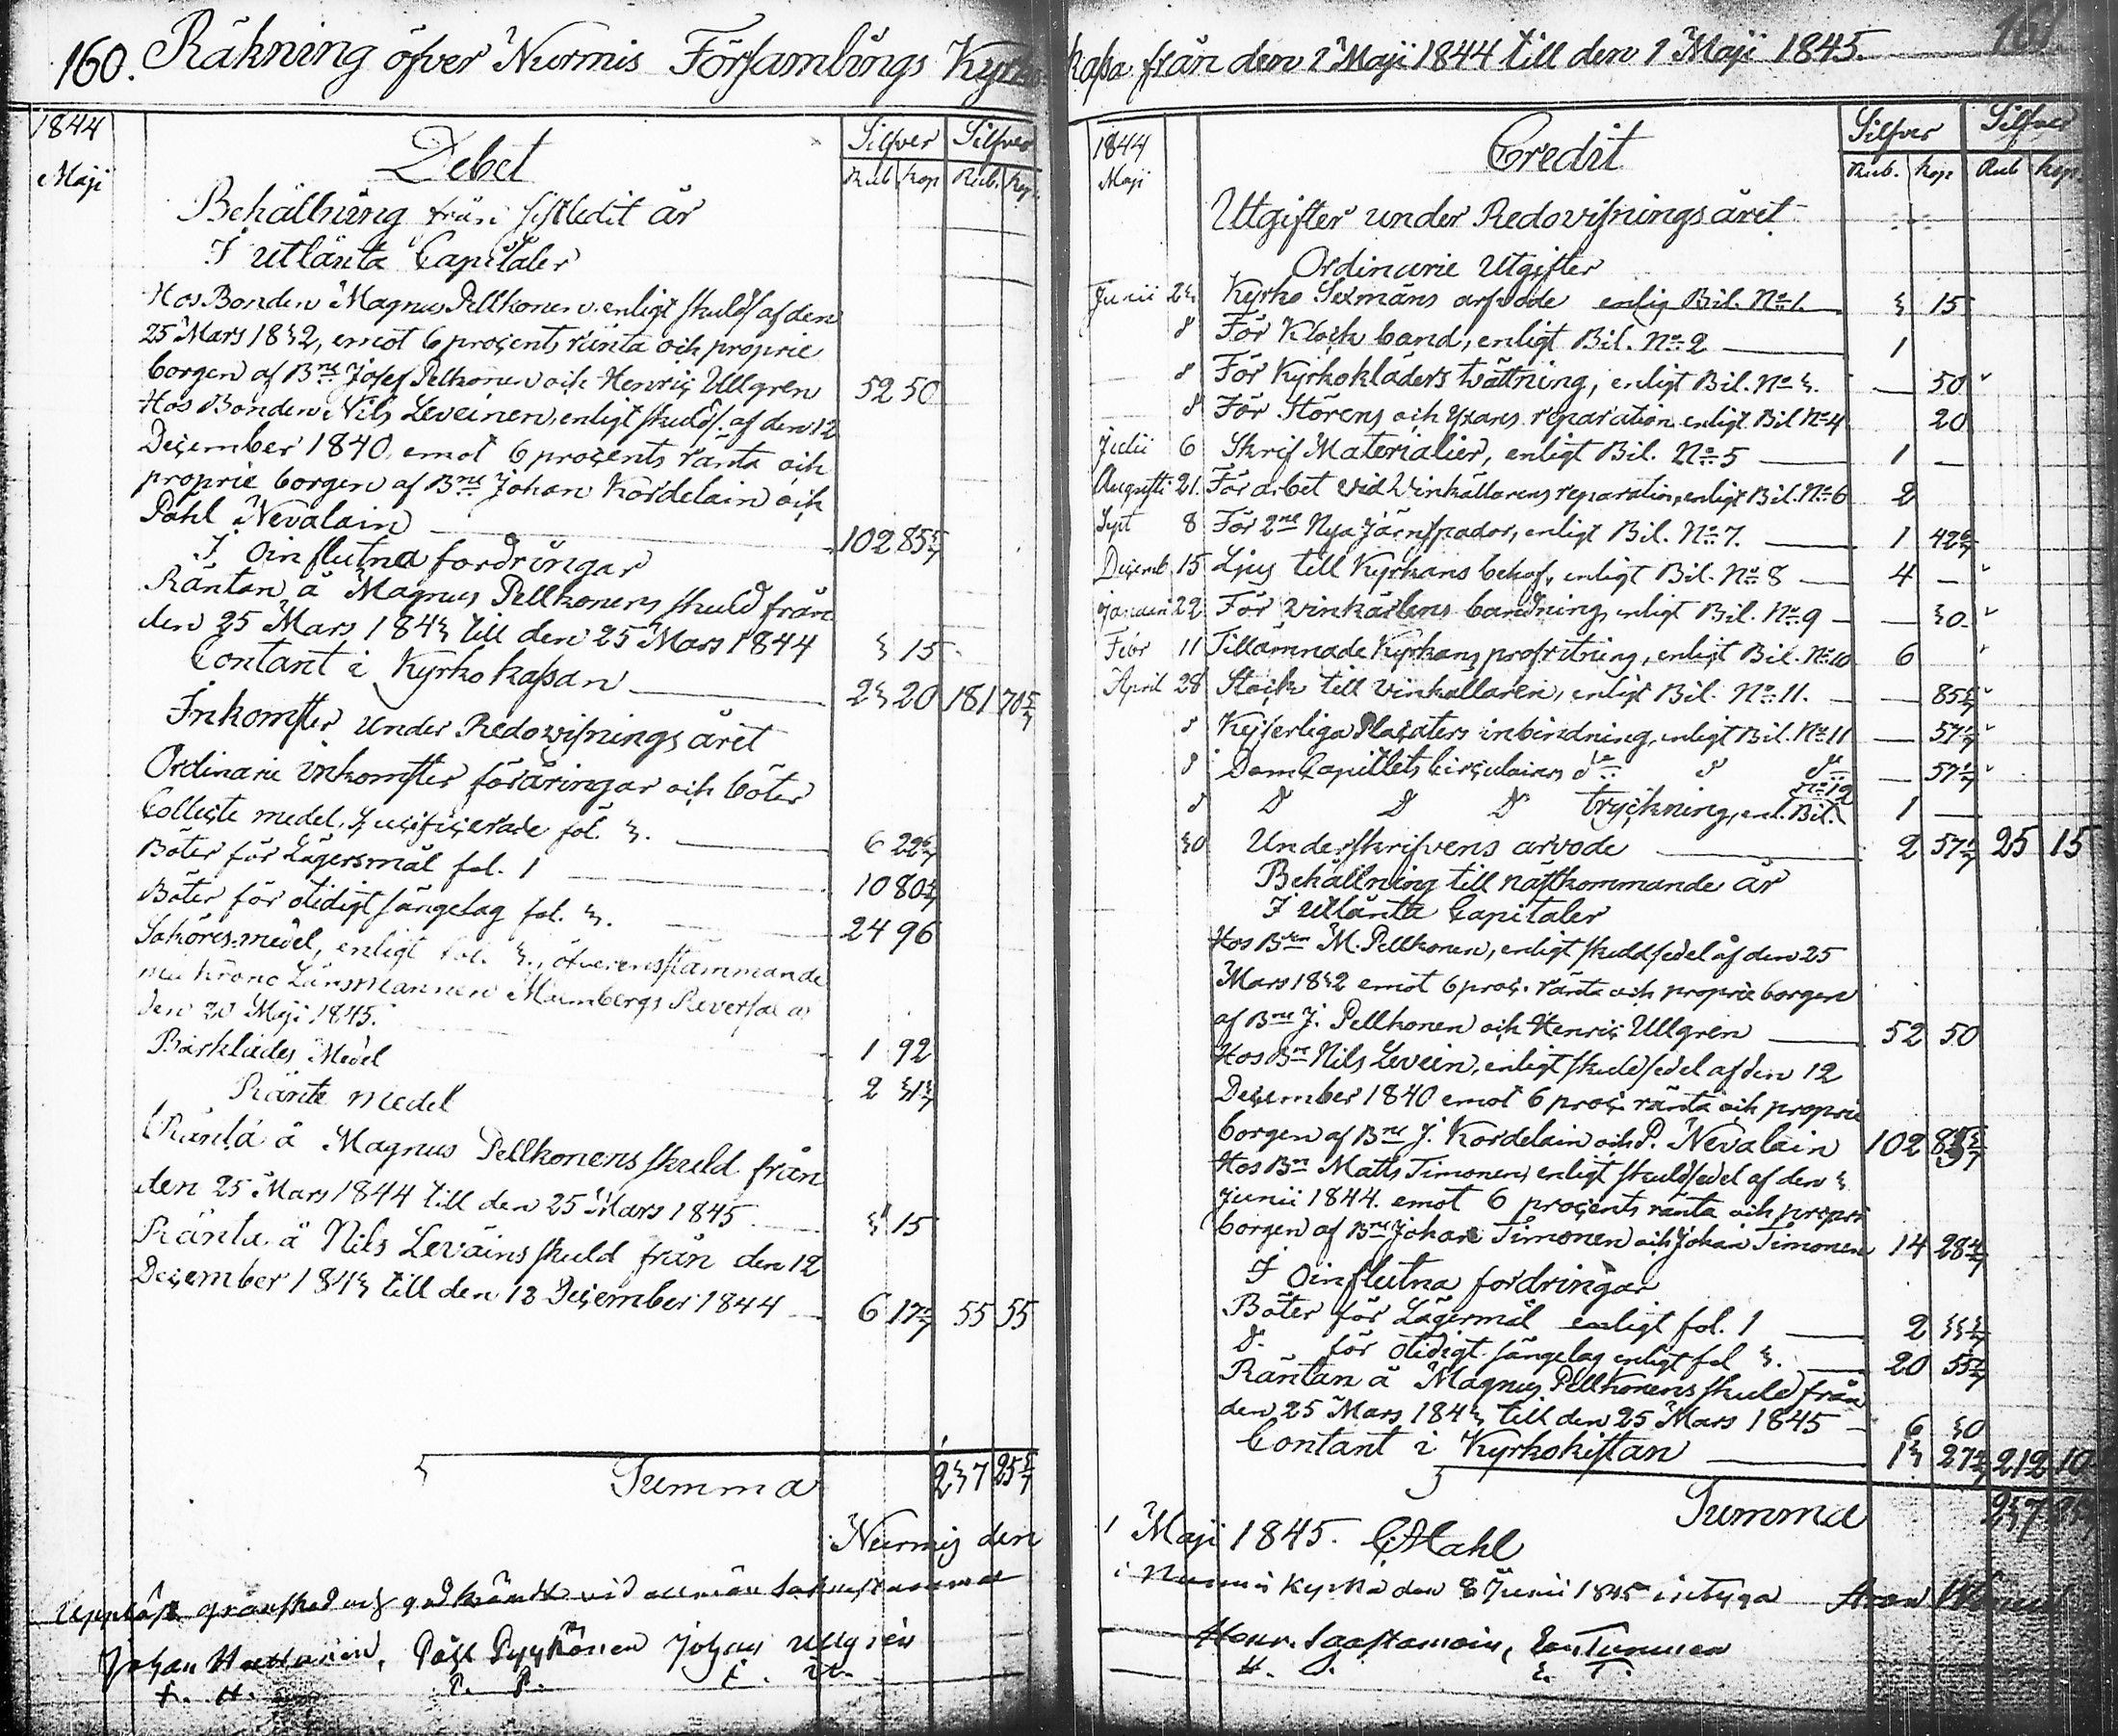 160. Räkning öfver Nurmis Församlings Kyrko
1844
Maji
Debet
Silfver Silfver
Rub. Kop Rub. Kop.
Behållning från sistledit år
I utlänta Capitaler
Hos Bonden Magnus Pellkonen enligt skulds. af den
25 Mars 1832, emot 6 proçents ränta och proprie
borgen af Bne Josef Pelkonen och Henriç Ullgren 52 50
Hos Bonden Nils Leveinen, enligt skulds. af den 12
Deçember 1840, emot 6 proçents ränta och
proprie borgen af Bne Johan Kordelain och
Påhl Nevalain 102 85 5/7
I Oinflutna fordringar
Räntan å Magnus Pellkonens skuld från
den 25 Mars 1843 till den 25 Mars 1844 3 15
Contant i Kyrkokassan 23 20 181 70 5/7
Inkomster under Redovisningsåret
Ordinarie inkomster föräringar och böter
Colleçte medel, speçifiçerade fol. 3. 6 22 6/7
Böter för Lägersmål fol. 1 10 80 4/7
Böter för otidigt sängelag fol. 3. 24 96
Saköresmedel, enligt fol. 3., öfverensstämmande
med Krono Länsmannen Malmbergs Reversal af
den 20 Maji 1845. 1 92
Bårklädes Medel 2 31 3/7
Ränte medel
Ränta å Magnus Pellkonens skuld från
den 25 Mars 1844 till den 25 Mars 1845 3 15
Ränta å Nils Leväins skuld från den 12
Deçember 1843 till den 12 Deçember 1844 6 17 1/7 55 55
Summa 237 25 5/7
Nurmis den
Uppläst granskad och godkändt vid allmän Sockenstämma
Johan Hattunin, Påhl Pyykönen Johan Ullgren
J. H. P. P. J. U.
kassa från den 1 Maji 1844 till den 1 Maji 1845. 161
1844
Maji
Credit
Silfver Silfver
Rub. Kop Rub Kop.
Utgifter under Redovisningsåret
Ordinarie Utgifter
Junii 23 Kyrko Sexmäns arfvode enlig Bil. No 1. 3 15
d För Klock band, enligt Bil. No 2 1
d För Kyrkokläders tvättning, enligt Bil. No 3. — 50
d För Störens och Yxans reparation enligt Bil No 4 20
Julii 6 Skrif Materialier, enligt Bil. No 5 1 —
Augusti 21. För arbet vid Vinkällarens reparation, enligt Bil. No 6 2
Sept 8 För 2ne Nya Järnspador, enligt Bil. No 7. 1 42 6/7
Deçemb. 15 Ljus till Kyrkans behof, enligt Bil. No 8 4 —
Januari 22 För vinkärlens bandning, enligt Bil. No 9 — 30
Febr 11 Tillämnade Kyrkans profritning, enligt Bil. No 10 6
April 28 Stock till Vinkällaren, enligt Bil. No 11. — 85 5/7
d Kejserliga Plaçaters inbindning, enligt Bil. No 11 — 57 1/7
d DomCapitlets Cirçulairers do d do — 57 1/7
No 12
d D D D tryçkning, enl. Bil. 1 —
30 Underskrifvens arvode 2 57 1/7 25 15
Behållning till nästkommande år
I Utlänta Capitaler
Hos Bden M. Pellkonen, enligt skuldsedel af den 25
Mars 1832 emot 6 proç. ränta och proprie borgen
af Bne J. Pellkonen och Henriç Ullgren 52 50
Hos Bn Nils Levein, enligt skuldsedel af den 12
Deçember 1840 emot 6 proç ränta och proprie
borgen af Bne J. Kordelain och P. Nevalain 102 85 5/7
Hos Bn Matts Timonen, enligt skuldsedel af den 3
Junii 1844. emot 6 proçents ränta och propri
borgen af Bne Johan Timonen och Johan Timonen 14 28 4/7
I Oinflutna fordringar
Böter för Lägermål enligt fol. 1 2 33 1/7
D. för otidigt sängelag enligt fol 3. 20 55 3/7
Räntan å Magnus Pellkonens skuld från
den 25 Mars 1843 till den 25 Mars 1845 6 30
Contant i Kyrkokistan 13 27 2/7 212 10
Summa 237 25
1 Maji 1845. C Stahl
i Nurmis Kyrka den 8 Junii 1845 intyga Aron
Henr. Saastamoin, Turunen
H. S. T.